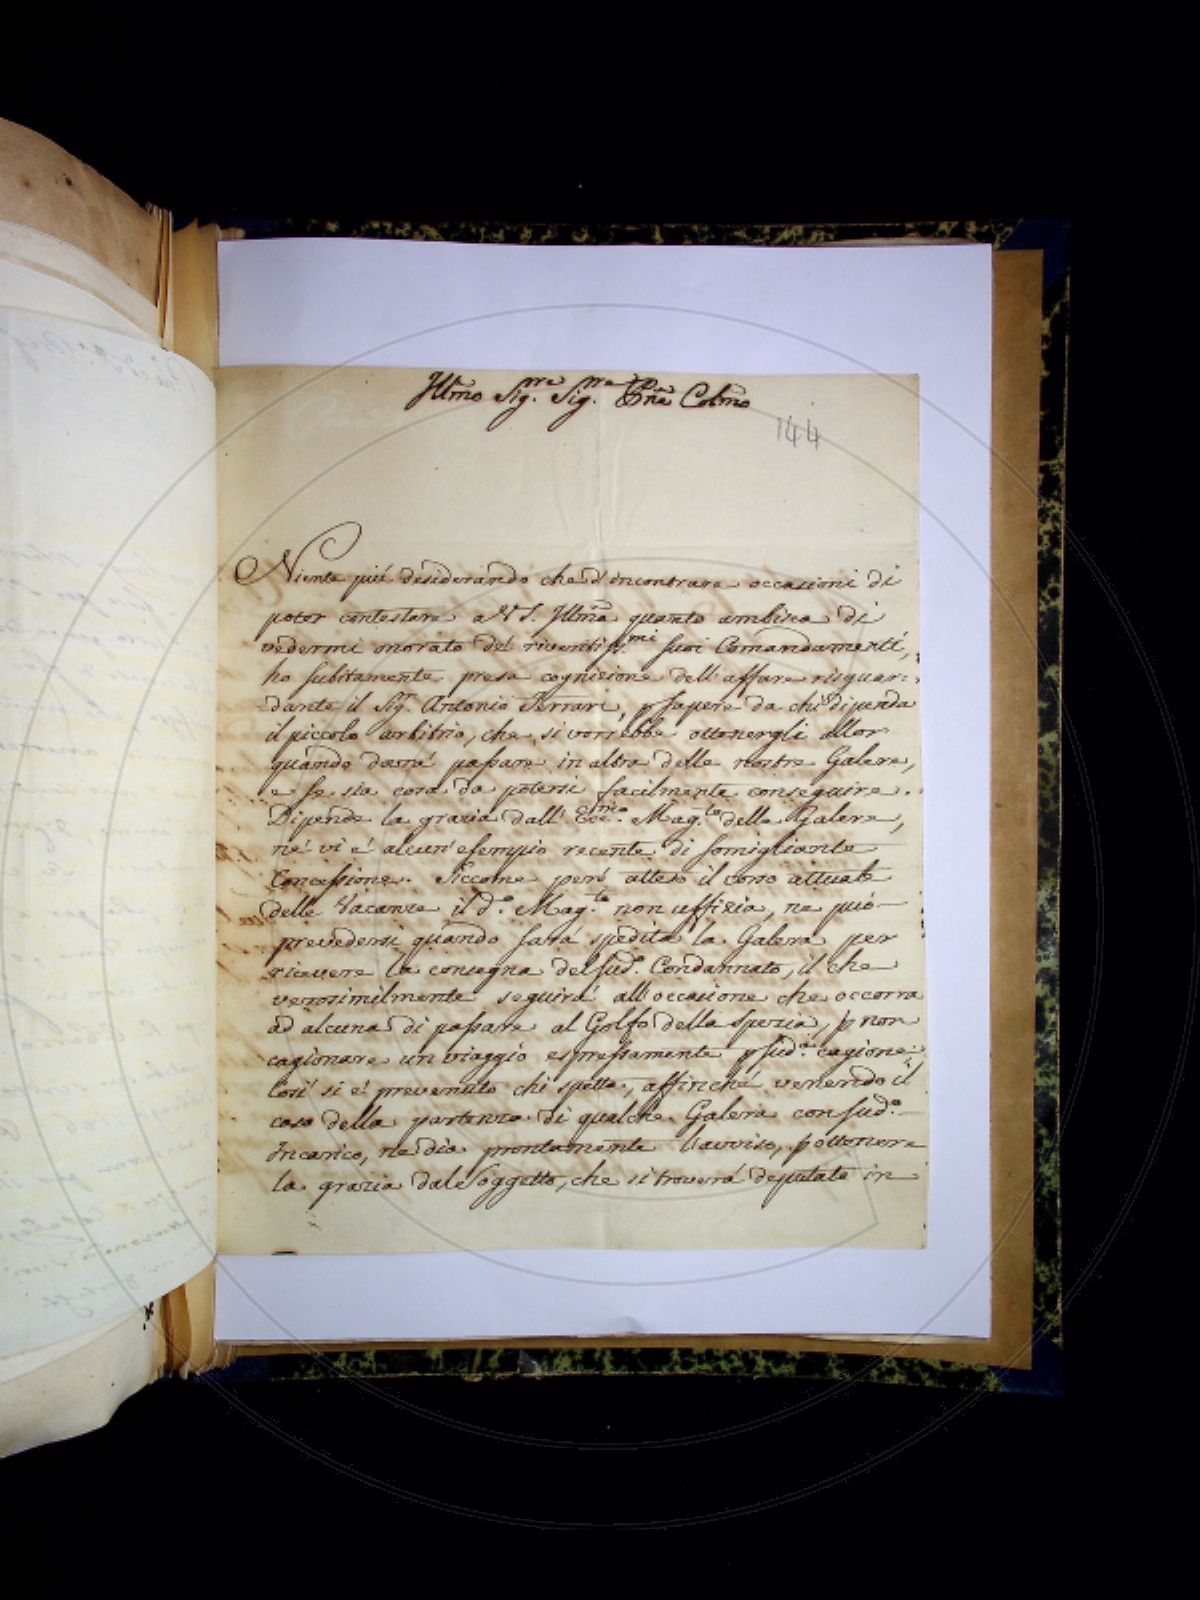 Illmo Sig.re Sig.re Pne Colmo
144
Niente più desiderando che d'incontrare occasioni di
poter contestare a V. S. Illma quanto ambisca di
vedermi onorato de' riveritiss.mi suoi Comandamenti,
ho subitamente presa cognizione dell'affare risguar:
dante il Sig. Antonio Ferrari, p sapere da chi dipenda
il piccolo arbitrio, che si vorrebbe ottenergli allor
quando dovrà passare in altra delle nostre Galere,
e se sia cosa da potersi facilmente conseguire.
Dipende la grazia dall' Ecc.mo Mag.to delle Galere,
né vi è alcun'esempio recente di somigliante
Concessione. Siccome però atteso il corso attuale
delle Vacanze il d.o Mag.to non uffizia, ne può
prevedersi quando sarà spedita la Galera per
ricevere la consegna del sud.o Condannato, il che
verosimilmente seguirà all'occasione che occorra
ad alcuna di passare al Golfo della Spezia, p non
cagionare un viaggio espressamente p sud.a cagione:
Così si è prevenuto chi spetta, affinché venendo il
caso della partenza di qualche Galera con sud.o
Incarico, ne dia prontamente l'avviso, p ottenere
la grazia dal Soggetto, che si troverà deputato in